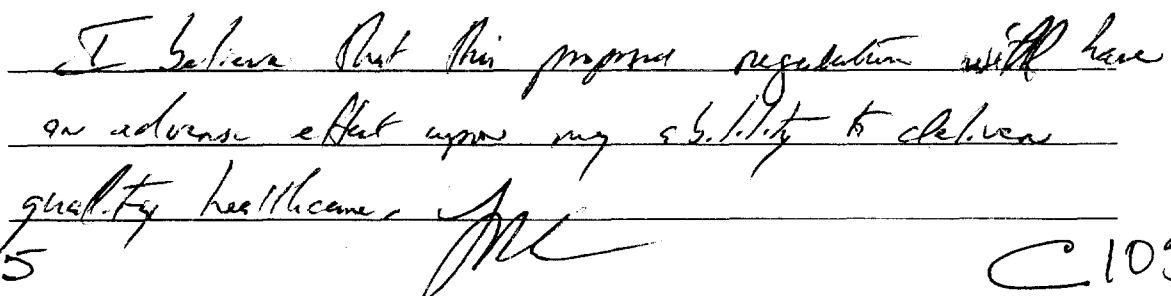 I believe that this proposed regulation will have
an adverse effect upon my ability to deliver
quality healthcare.
5 C 10